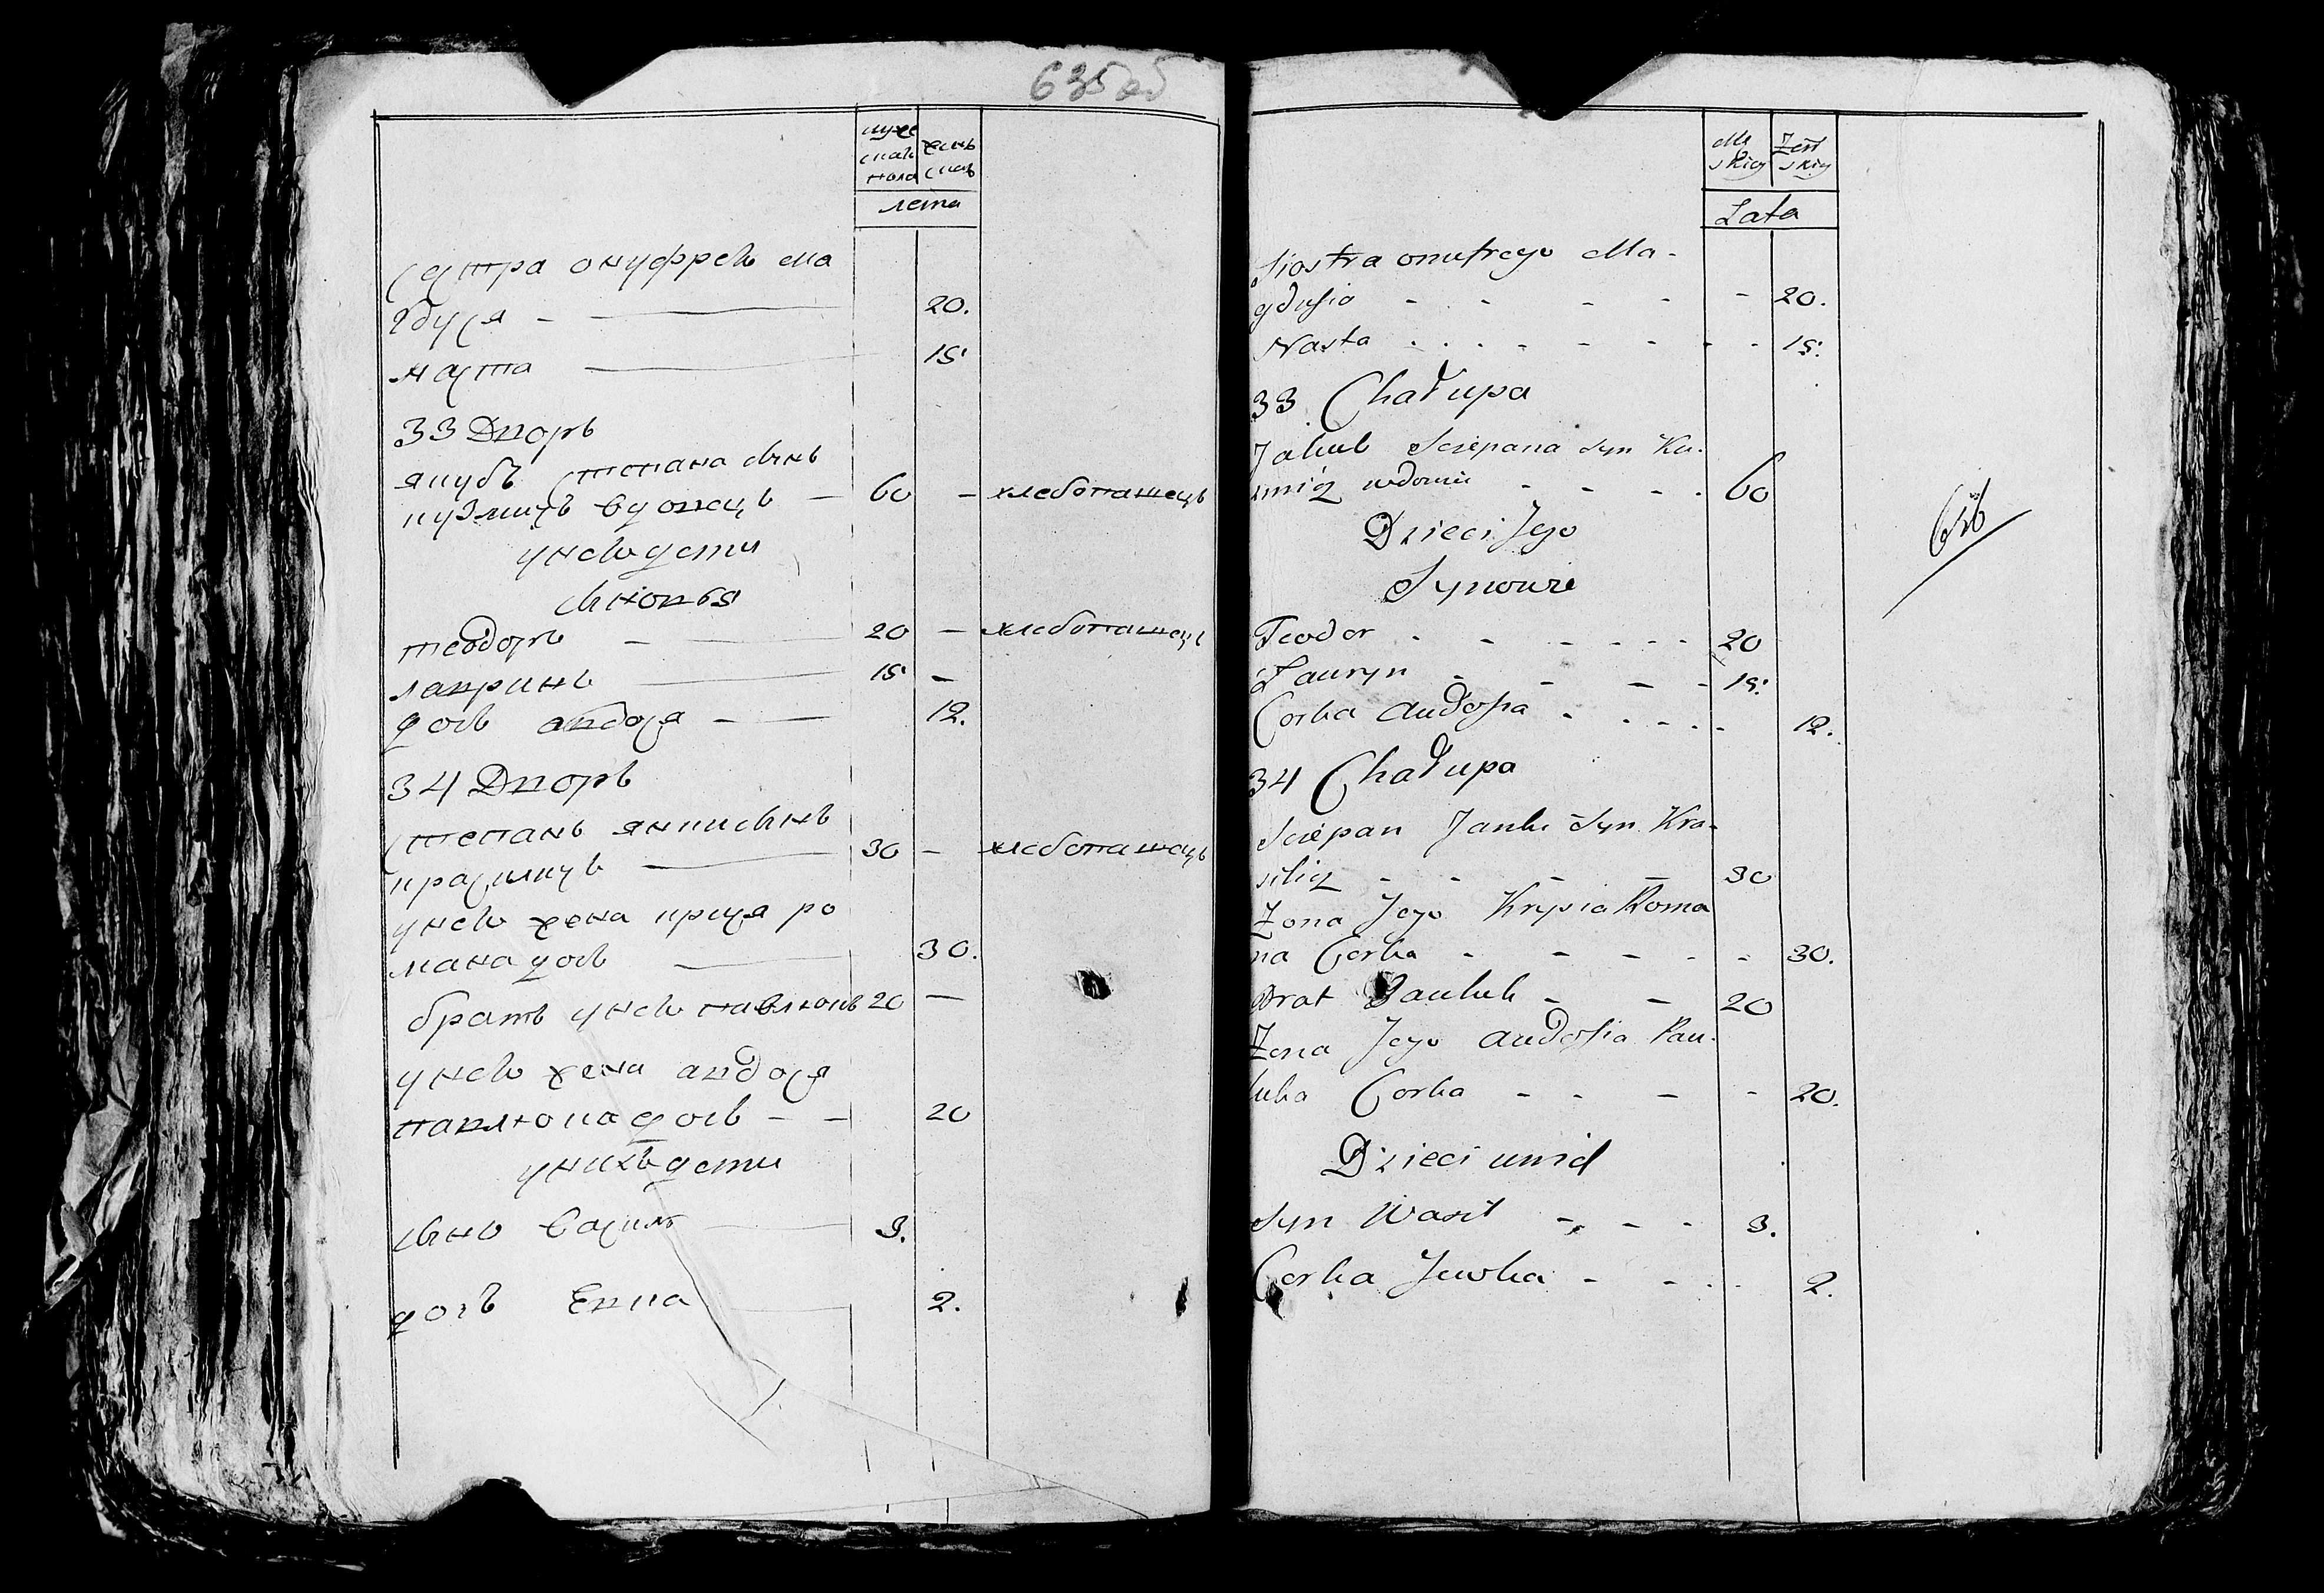 635об
муже
скаго
пола
женъ
скаго
лета
сестра онуфрея ма
гдуся 20.
наста 15
33 Дворъ
якубъ степана сынъ
кузмичъ вдовецъ 60 — хлебопашецъ
у него дети
сыновья
теодоръ — 20 — хлебопашецъ
лавринъ 15 —
дочь авдося — 12.
34 Дворъ
степанъ янки сынъ
красиличъ — 30 — хлебопашецъ
у него жена крися ро
мана дочь — 30.
братъ у него павлюкъ 20 —
у него жена авдося
павлюка дочь — — 20
у нихъ дети
сынъ василь 3.
дочь Евка 2.
Mę
skiej
Żeń
skiej
Lata
Siostra onufreyo Ma-
gdusia - - - - - 20.
Nasta - - - - - 15.
33 Chałupa
Jakub Sciepana Syn Ku-
zmicz wdowiec - - - - 60
Dzieci Jego
Synowie
Teodor - - - - - 20
Lauryn - - - - 15.
Corka Audosia - - - - - 12.
34 Chałupa
Sciepan Janki Syn Kra-
silicz - - - - 30
Żona Jego Krysia Roma
na Corka - - - - - 30.
Brat Pauluk - - 20
Żona Jego Audosia Pau-
luka Corka - - - - 20.
Dzieci u nich
Syn Wasil - - - 3.
Corka Jewka - - - - 2.